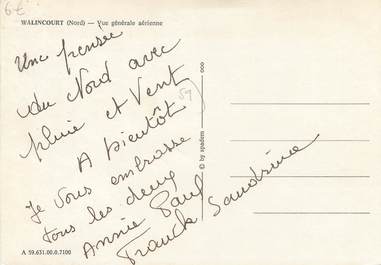 6€
WALINCOURT (Nord) — Vue générale aérienne
Une pensée
du Nord avec
pluie et Vent
59
A bientôt
Je vous embrasse
tous les deux
Annie Paul
Franck Sandrine
© by spadem
A 59.631.00.0.7100